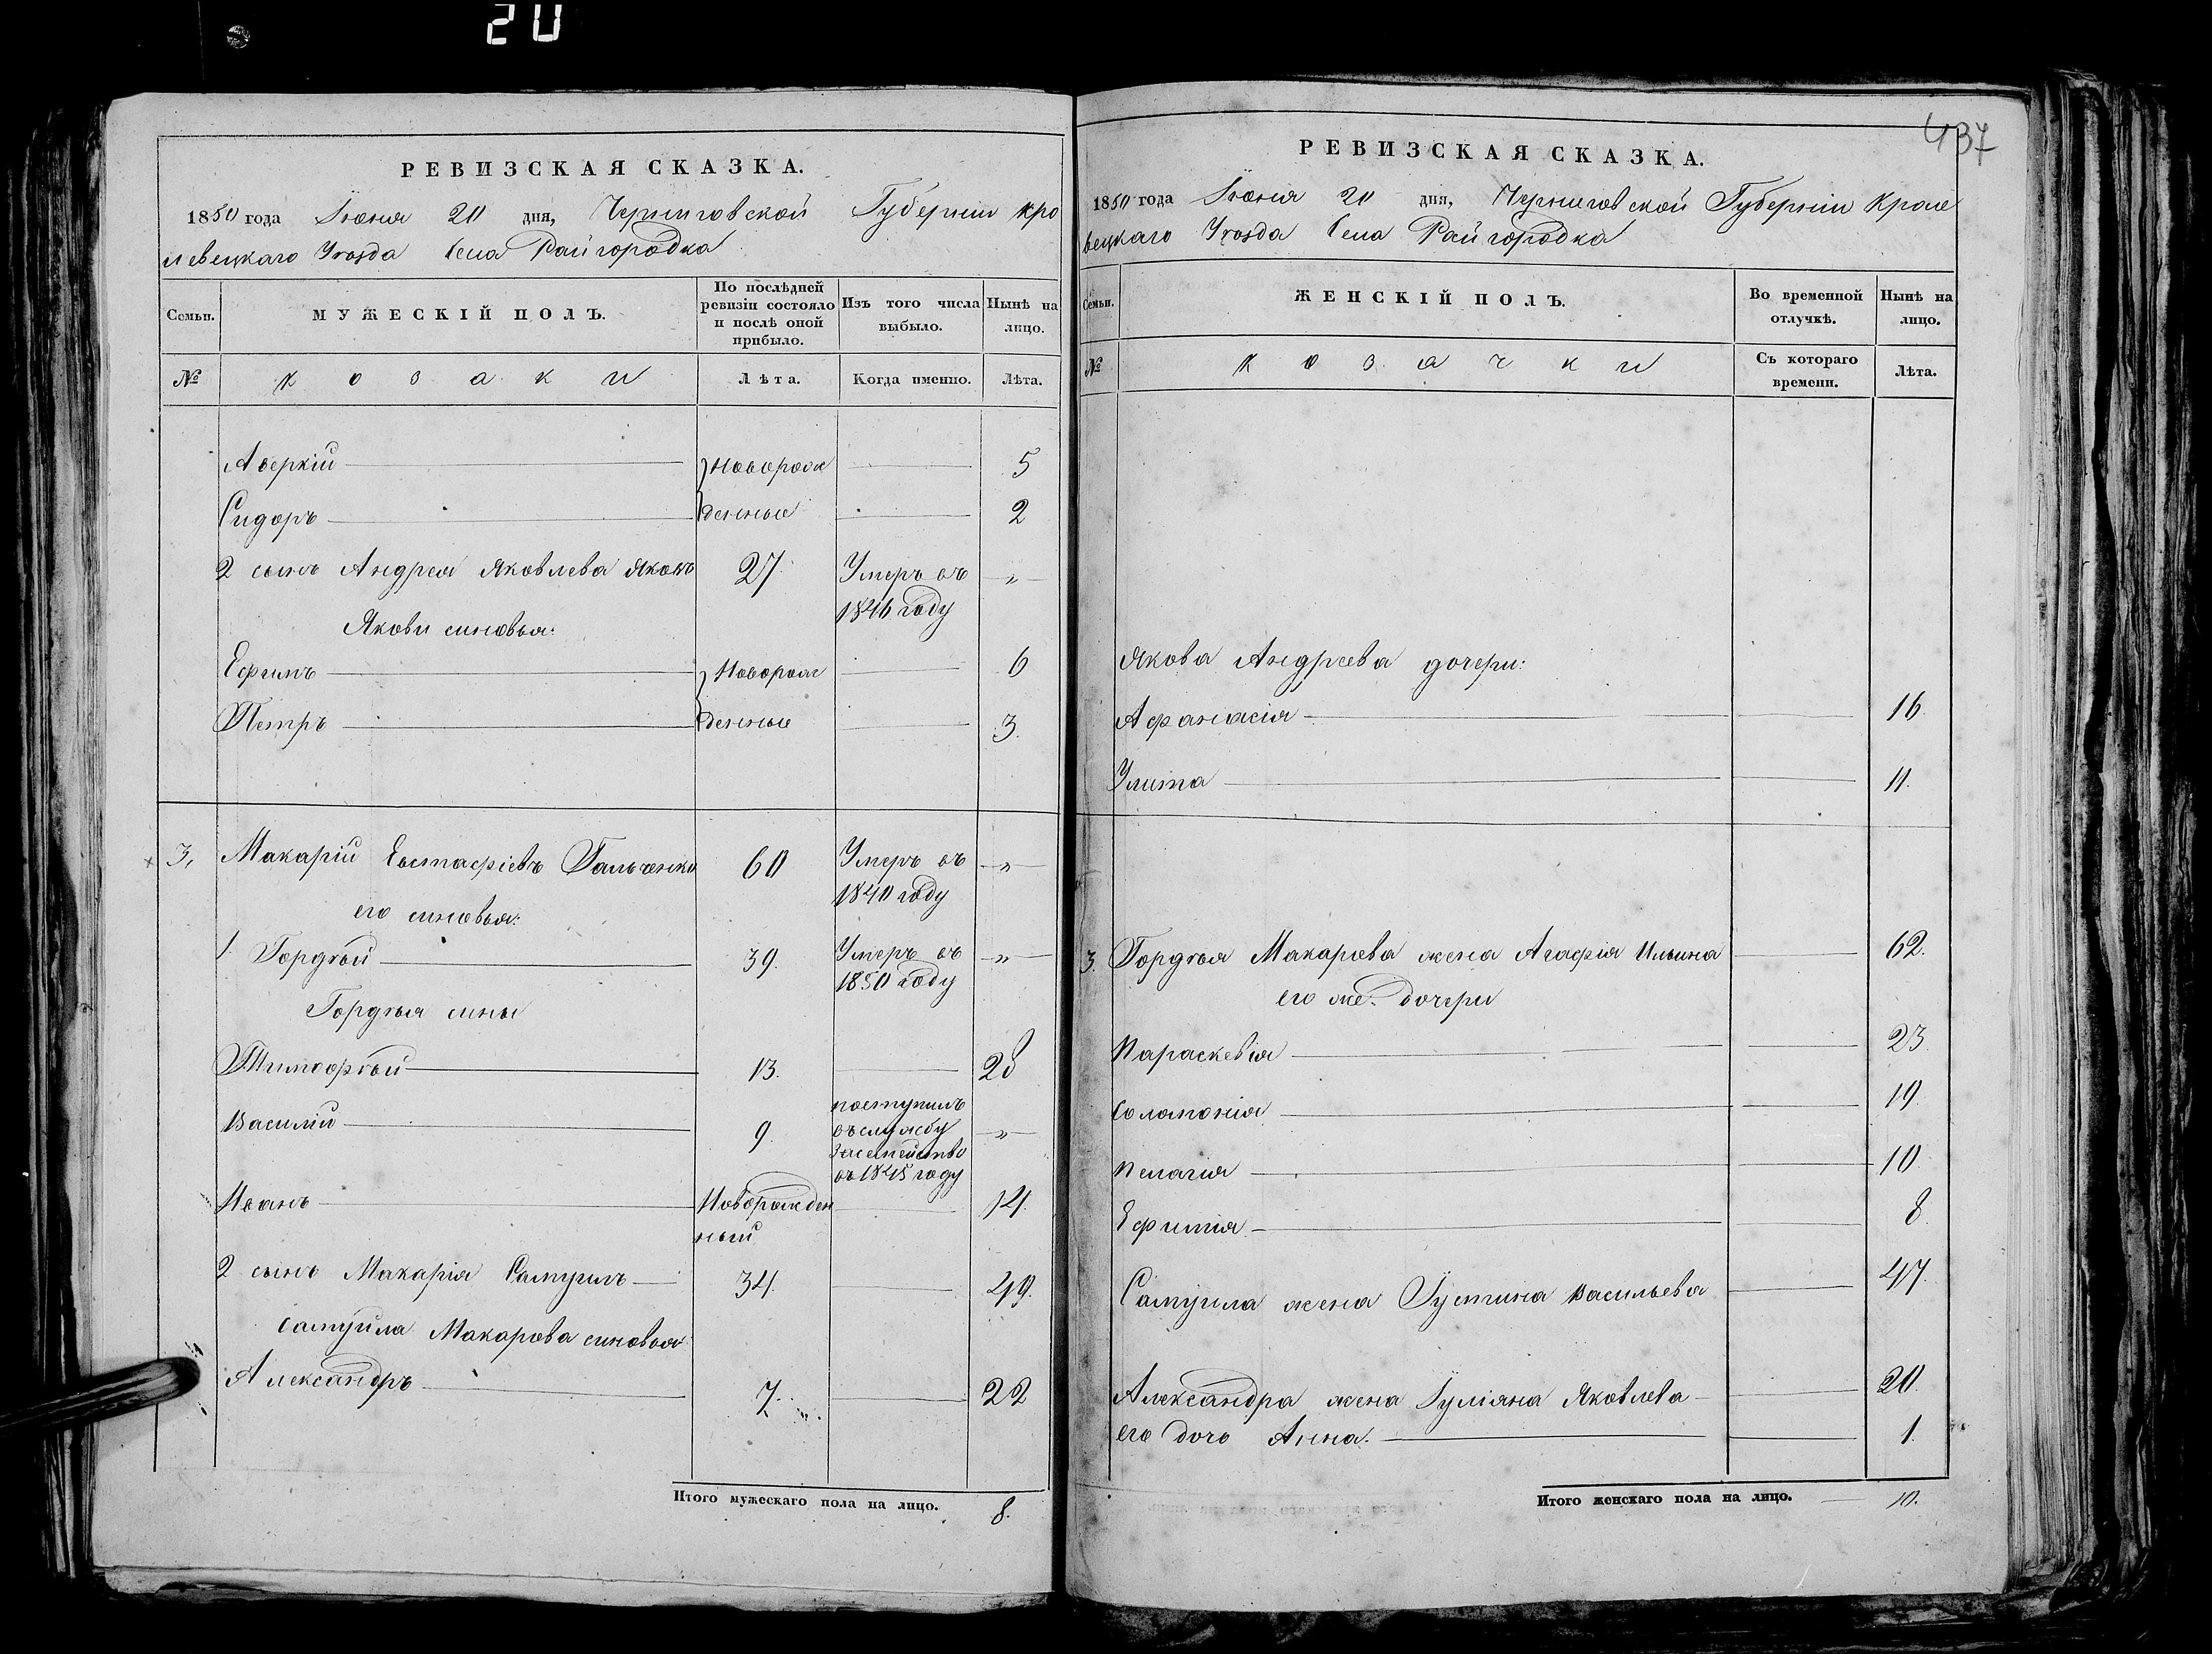 20
РЕВИЗСКАЯ СКАЗКА.
1850 года Іюня 20 дня, Черниговской Губерніи Кро
левецкаго Уѣзда Села Райгородка
Семьи.
МУЖЕСКІЙ ПОЛЪ.
По послѣдней ревизіи состояло и послѣ оной прибыло.
Изъ того числа выбыло.
Нынѣ на лицо.
№
Козаки
Лѣта.
Когда именно.
Лѣта.
Аверкій новорож 5
Сидоръ денные 2
2 сынъ Андрея Яковлева Яковъ 27 Умеръ въ „
1846 году
Якова синовья:
Ефимъ Новорож 6
Петръ денные 3.
3, Макарій Евстафіевъ Гальченко 60 Умеръ въ „
1840 году
его синовья:
1. Гордѣй 39. Умеръ въ „
1850 году
Гордѣя сины
Тимофѣй 13. 28
Василій 9. поступилъ
въ службу „
въ 1845 году
Иванъ Новорожден 14.
ный
2 сынъ Макарія Самуилъ 34. 49.
Самуйла Макарова синовья:
Александръ 7. 22
Итого мужескаго пола на лицо. 8.
437
РЕВИЗСКАЯ СКАЗКА.
1850 года Іюня 20 дня, Черниговской Губерніи Кроле
вецкаго Уѣзда Села Райгородка
Семьи.
ЖЕНСКІЙ ПОЛЪ.
Во временной отлучкѣ.
Нынѣ на лицо.
№
Козачки
Съ котораго времени.
Лѣта.
Якова Андреева дочери:
Афанасія 16.
Улита 11.
3. Гордѣя Макарова жена Агафія Ильина 62.
его же дочери
Параскевія 23
Соломонія 19
Пелагія 10
Ефимія 8.
Самуила жена Іустина Васильева 47.
Александра жена Іуліяна Яковлева 20.
его дочь Анна. 1.
Итого женскаго пола на лицо. 10.